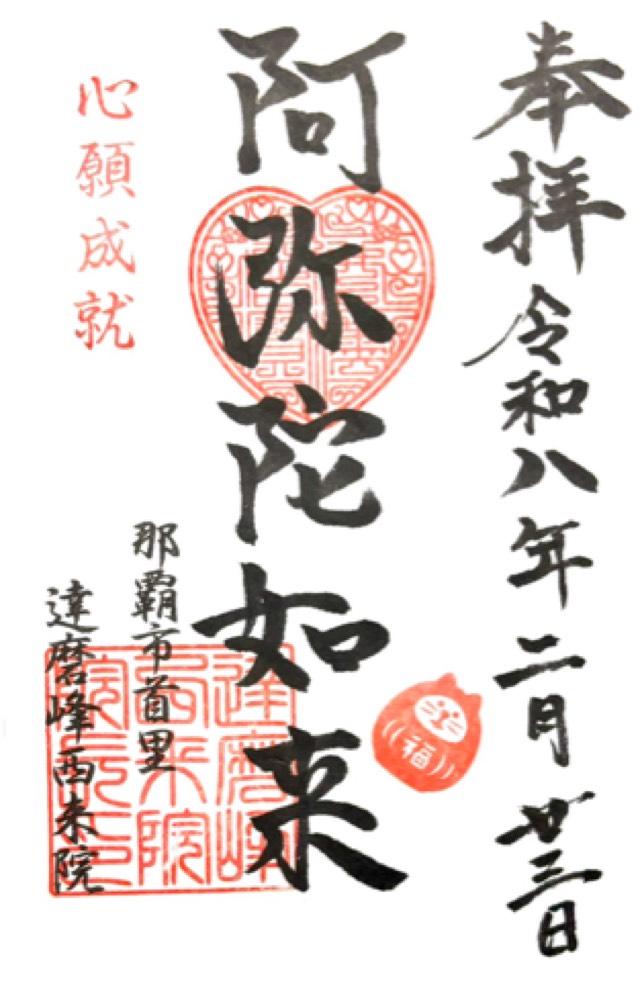 奉拝 令和八年二月廿三日
阿弥陀如来
心願成就
那覇市首里
達磨峰西来院
福
達磨峰
西来院
院之印